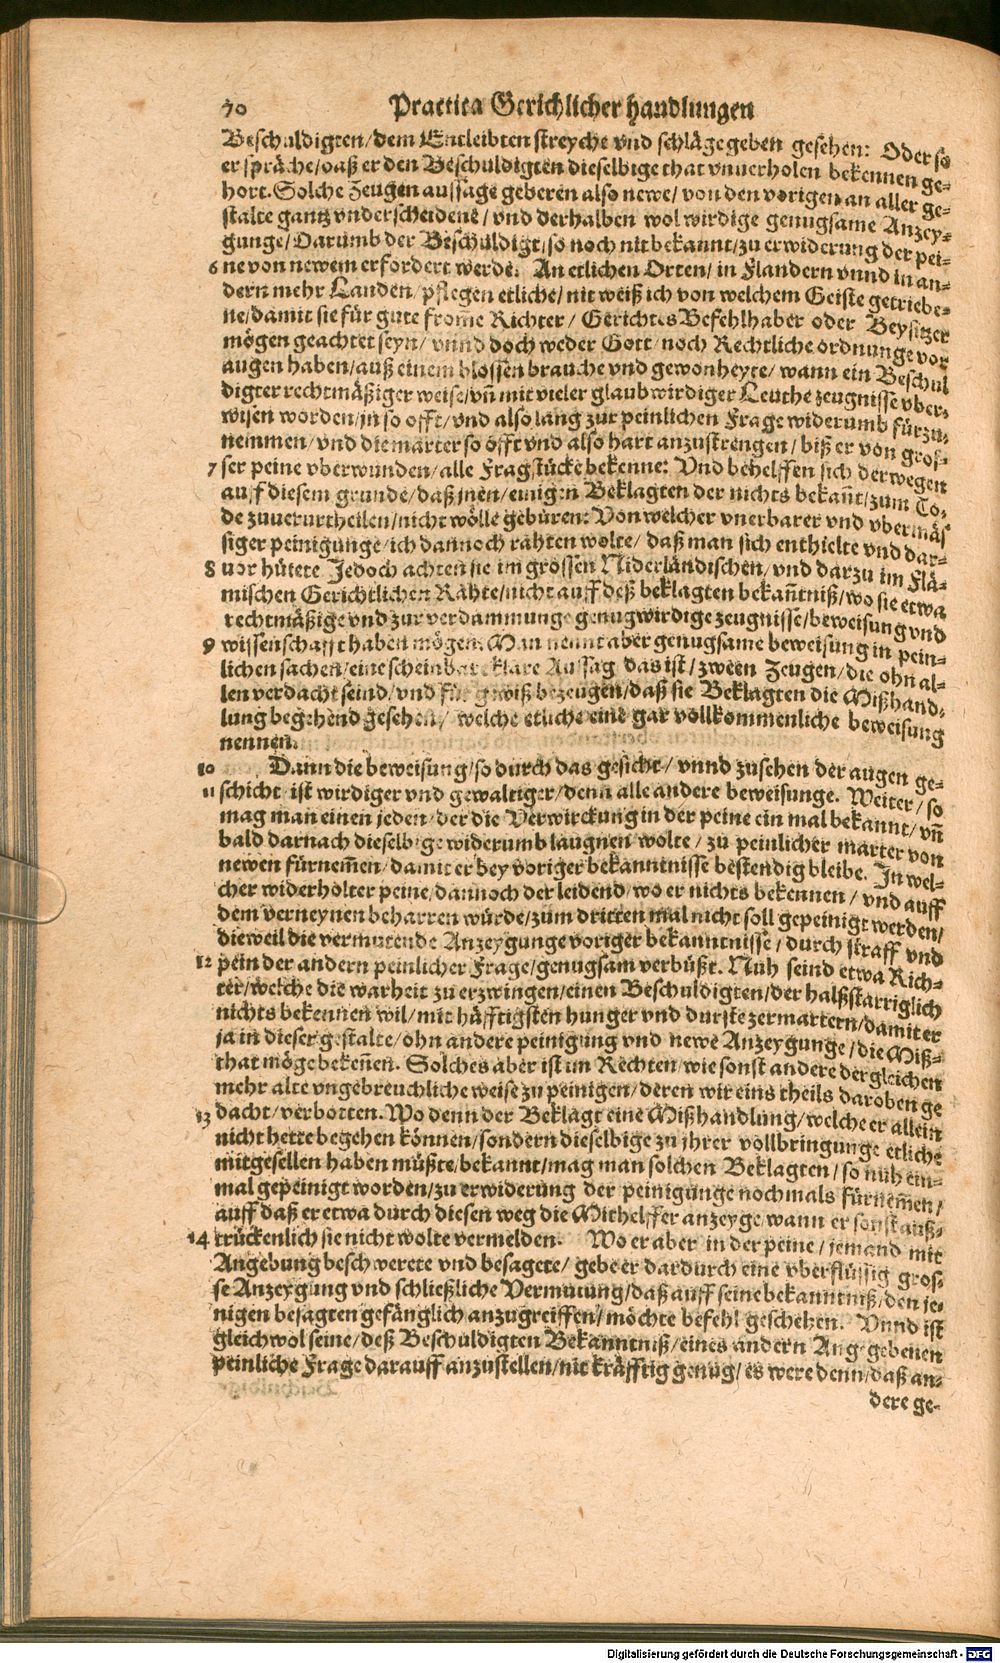 70 Practica Gerichlicher handlungen
Beschuldigten/dem Entleibten streyche vnd schläge geben gesehen: Oder so
er spräche/daß er den Beschuldigten dieselbige that vnuerholen bekennen ge-
hort. Solche Zeugen aussage geberen also newe/von den vorigen an aller ge-
stalte gantz vnderscheidene/vnd derhalben wol wirdige genugsame Anzey-
gunge/Darumb der Beschuldigt/so noch nit bekannt/zu erwiderung der pei-
6 ne von newem erfordert werde. An etlichen Orten/in Flandern vnnd in an-
dern mehr Landen/pflegen etliche/nit weiß ich von welchem Geiste getriebe-
ne/damit sie für gute from̄e Richter/Gerichts Befehlhaber oder Beysitzer
mögen geachtet seyn/vnnd doch weder Gott/noch Rechtliche ordnunge vor
augen haben/auß einem blossen brauche vnd gewonheyte/wann ein Beschul
digter rechtmäßiger weise/vn̄ mit vieler glaubwirdiger Leuthe zeugnisse vber-
wisen worden/jn so offt/vnd also lang zur peinlichen Frage widerumb fürzu-
nemmen/vnd die marter so offt vnd also hart anzustrengen/biß er von gros-
7 ser peine vberwunden/alle Fragstücke bekenne: Vnd behelffen sich derwegen
auff diesem grunde/daß jnen/einigen Beklagten der nichts bekañt/zum To-
de zuuerurtheilen/nicht wölle gebüren: Von welcher vnerbarer vnd vbermäs
siger peinigunge/ich dannoch rahten wolte/daß man sich enthielte vnd dar-
8 uor hütete Jedoch achten sie im grossen Niderländischen/vnd darzu im Flä-
mischen Gerichtlichen Rähte/nicht auff deß beklagten bekañtniß/wo sie etwa
rechtmäßige vnd zur verdammunge genugwirdige zeugnisse/beweisung vnd
9 wissenschafft haben mögen. Man nennt aber genugsame beweisung in pein-
lichen sachen/eine scheinbare klare Aussag das ist/zween Zeugen/die ohn al-
len verdacht seind/vnd für gewiß bezeugen/daß sie Beklagten die Mißhand-
lung begehend gesehen/welche etliche eine gar vollkommenliche beweisung
nennen.
10 Dann die beweisung/so durch das gesicht/vnnd zusehen der augen ge-
11 schicht ist wirdiger vnd gewaltiger/denn alle andere beweisunge. Weiter/so
mag man einen jeden/der die Verwirckung in der peine ein mal bekannt/vn̄
bald darnach dieselbige widerumb laugnen wolte/zu peinlicher marter von
newen fürnem̄en/damit er bey voriger bekanntnisse bestendig bleibe. In wel-
cher widerholter peine/dannoch der leidend/wo er nichts bekennen/vnd auff
dem verneynen beharren würde/zum dritten mal nicht soll gepeinigt werden/
dieweil die vermutende Anzeygunge voriger bekanntnisse/durch straff vnd
12 pein der andern peinlicher Frage/genugsam verbüßt. Nuh seind etwa Rich-
ter/welche die warheit zu erzwingen/einen Beschuldigten/der halßstarriglich
nichts bekennen wil/mit häfftigsten hunger vnd durste zermartern/damit er
ja in dieser gestalte/ohn andere peinigung vnd newe Anzeygunge/die Miß-
that möge bekeñen. Solches aber ist im Rechten/wie sonst andere dergleichen
mehr alte vngebreuchliche weise zu peinigen/deren wir eins theils daroben ge
13 dacht/verbotten. Wo denn der Beklagt eine Mißhandlung/welche er allein
nicht hette begehen können/sondern dieselbige zu jhrer vollbringunge etliche
mitgesellen haben müßte/bekannt/mag man solchen Beklagten/so nuh ein-
mal gepeinigt worden/zu erwiderung der peinigunge nochmals fürnem̄en/
auff daß er etwa durch diesen weg die Mithelffer anzeyge/wann er sonst auß-
14 trückenlich sie nicht wolte vermelden. Wo er aber in der peine/jemand mit
Angebung beschwerete vnd besagete/gebe er dardurch eine vberflüssig gros-
se Anzeygung vnd schließliche Vermutung/daß auff seine bekanntniß/den je-
nigen besagten gefänglich anzugreiffen/möchte befehl geschehen. Vnnd ist
gleichwol seine/deß Beschuldigten Bekanntniß/eines andern Angegebenen
peinliche Frage darauff anzustellen/nit kräfftig genug/es were denn/daß an-
dere ge-
Digitalisierung gefördert durch die Deutsche Forschungsgemeinschaft - DFG